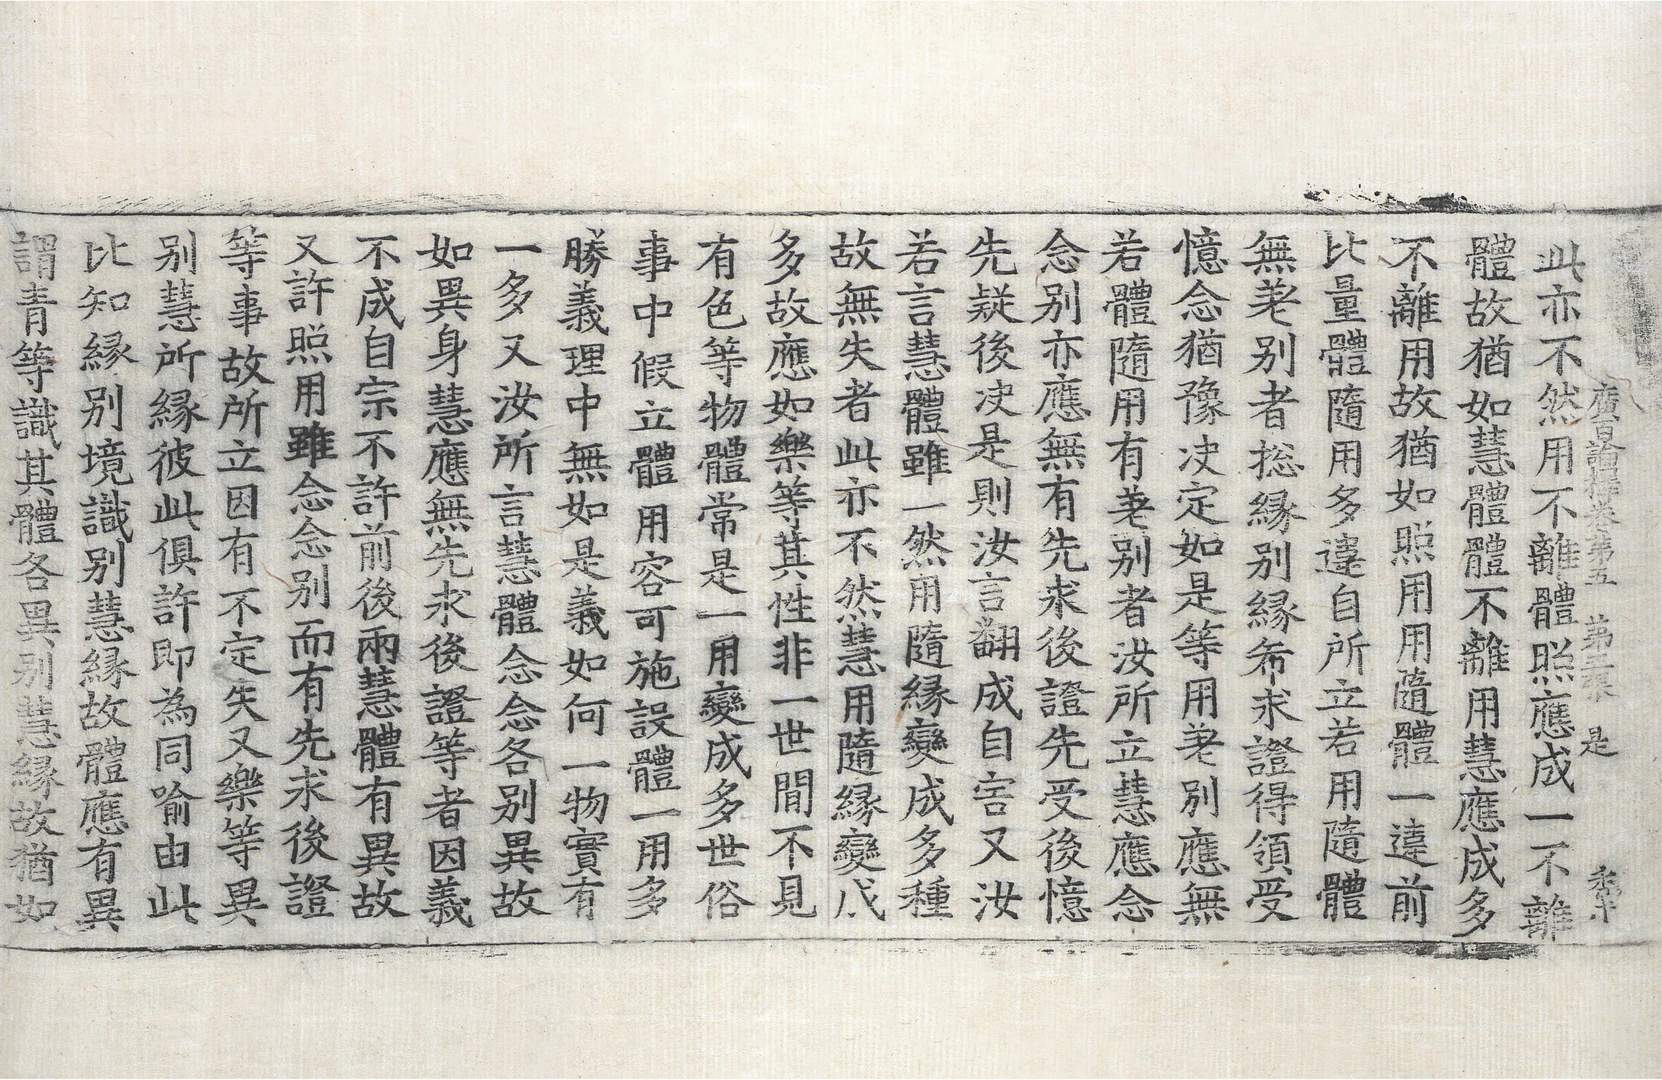 廣百論釋卷第五　第二張　是
此亦不然用不離體照應成一不離
體故猶如慧體體不離用慧應成多
不離用故猶如照用用隨體一違前
比量體隨用多違自所立若用隨體
無差別者捴縁別縁希求證得領受
憶念猶豫决定如是等用差別應無
若體隨用有差別者汝所立慧應念
念別亦應無有先求後證先受後憶
先疑後决是則汝言翻成自害又汝
若言慧體雖一然用隨縁變成多種
故無失者此亦不然慧用隨縁變成
多故應如樂等其性非一世間不見
有色等物體常是一用變成多世俗
事中假立體用容可施設體一用多
勝義理中無如是義如何一物實有
一多又汝所言慧體念念各別異故
如異身慧應無先求後證等者因義
不成自宗不許前後兩慧體有異故
又許照用雖念念別而有先求後證
等事故所立因有不定失又樂等異
別慧所縁彼此俱許即為同喻由此
比知縁別境識別慧縁故體應有異
謂青等識其體各異別慧縁故猶如